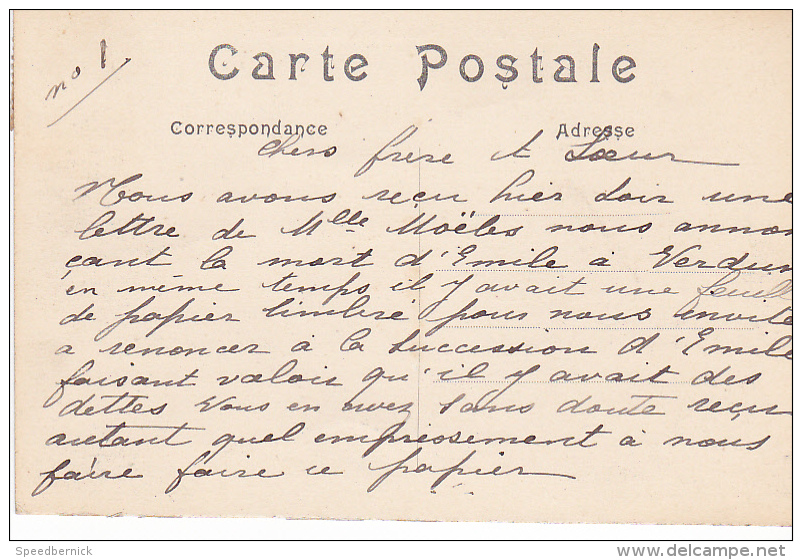 no 1.
Carte Postale
Correspondance
Adresse
Chers frère et Sœur
Nous avons reçu hier soir une
lettre de Mlle Moëles nous annon
çant la mort d'Emile à Verdun
en même temps il y avait une feuill
de papier timbré pour nous invite
a renoncer à la succession d'Emile
faisant valoir qu'il y avait des
dettes Vous en avez sans doute reçu
autant quel empressement à nous
faire faire ce papier
Speedbernick
delcampe.net